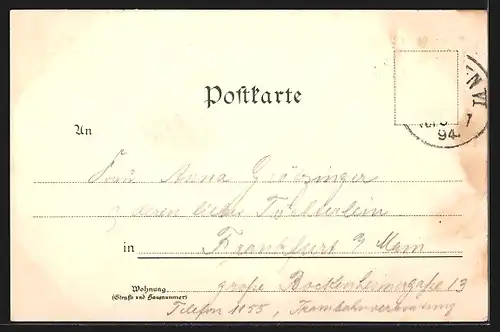 Postkarte
94
An
Frau Anna Grözinger
& deren liebes Töchterlein
in Frankfurt a/ Main
Wohnung große Bockenheimergaße 13
(Straße und Hausnummer)
Telefon 1155, Trambahnverbindung